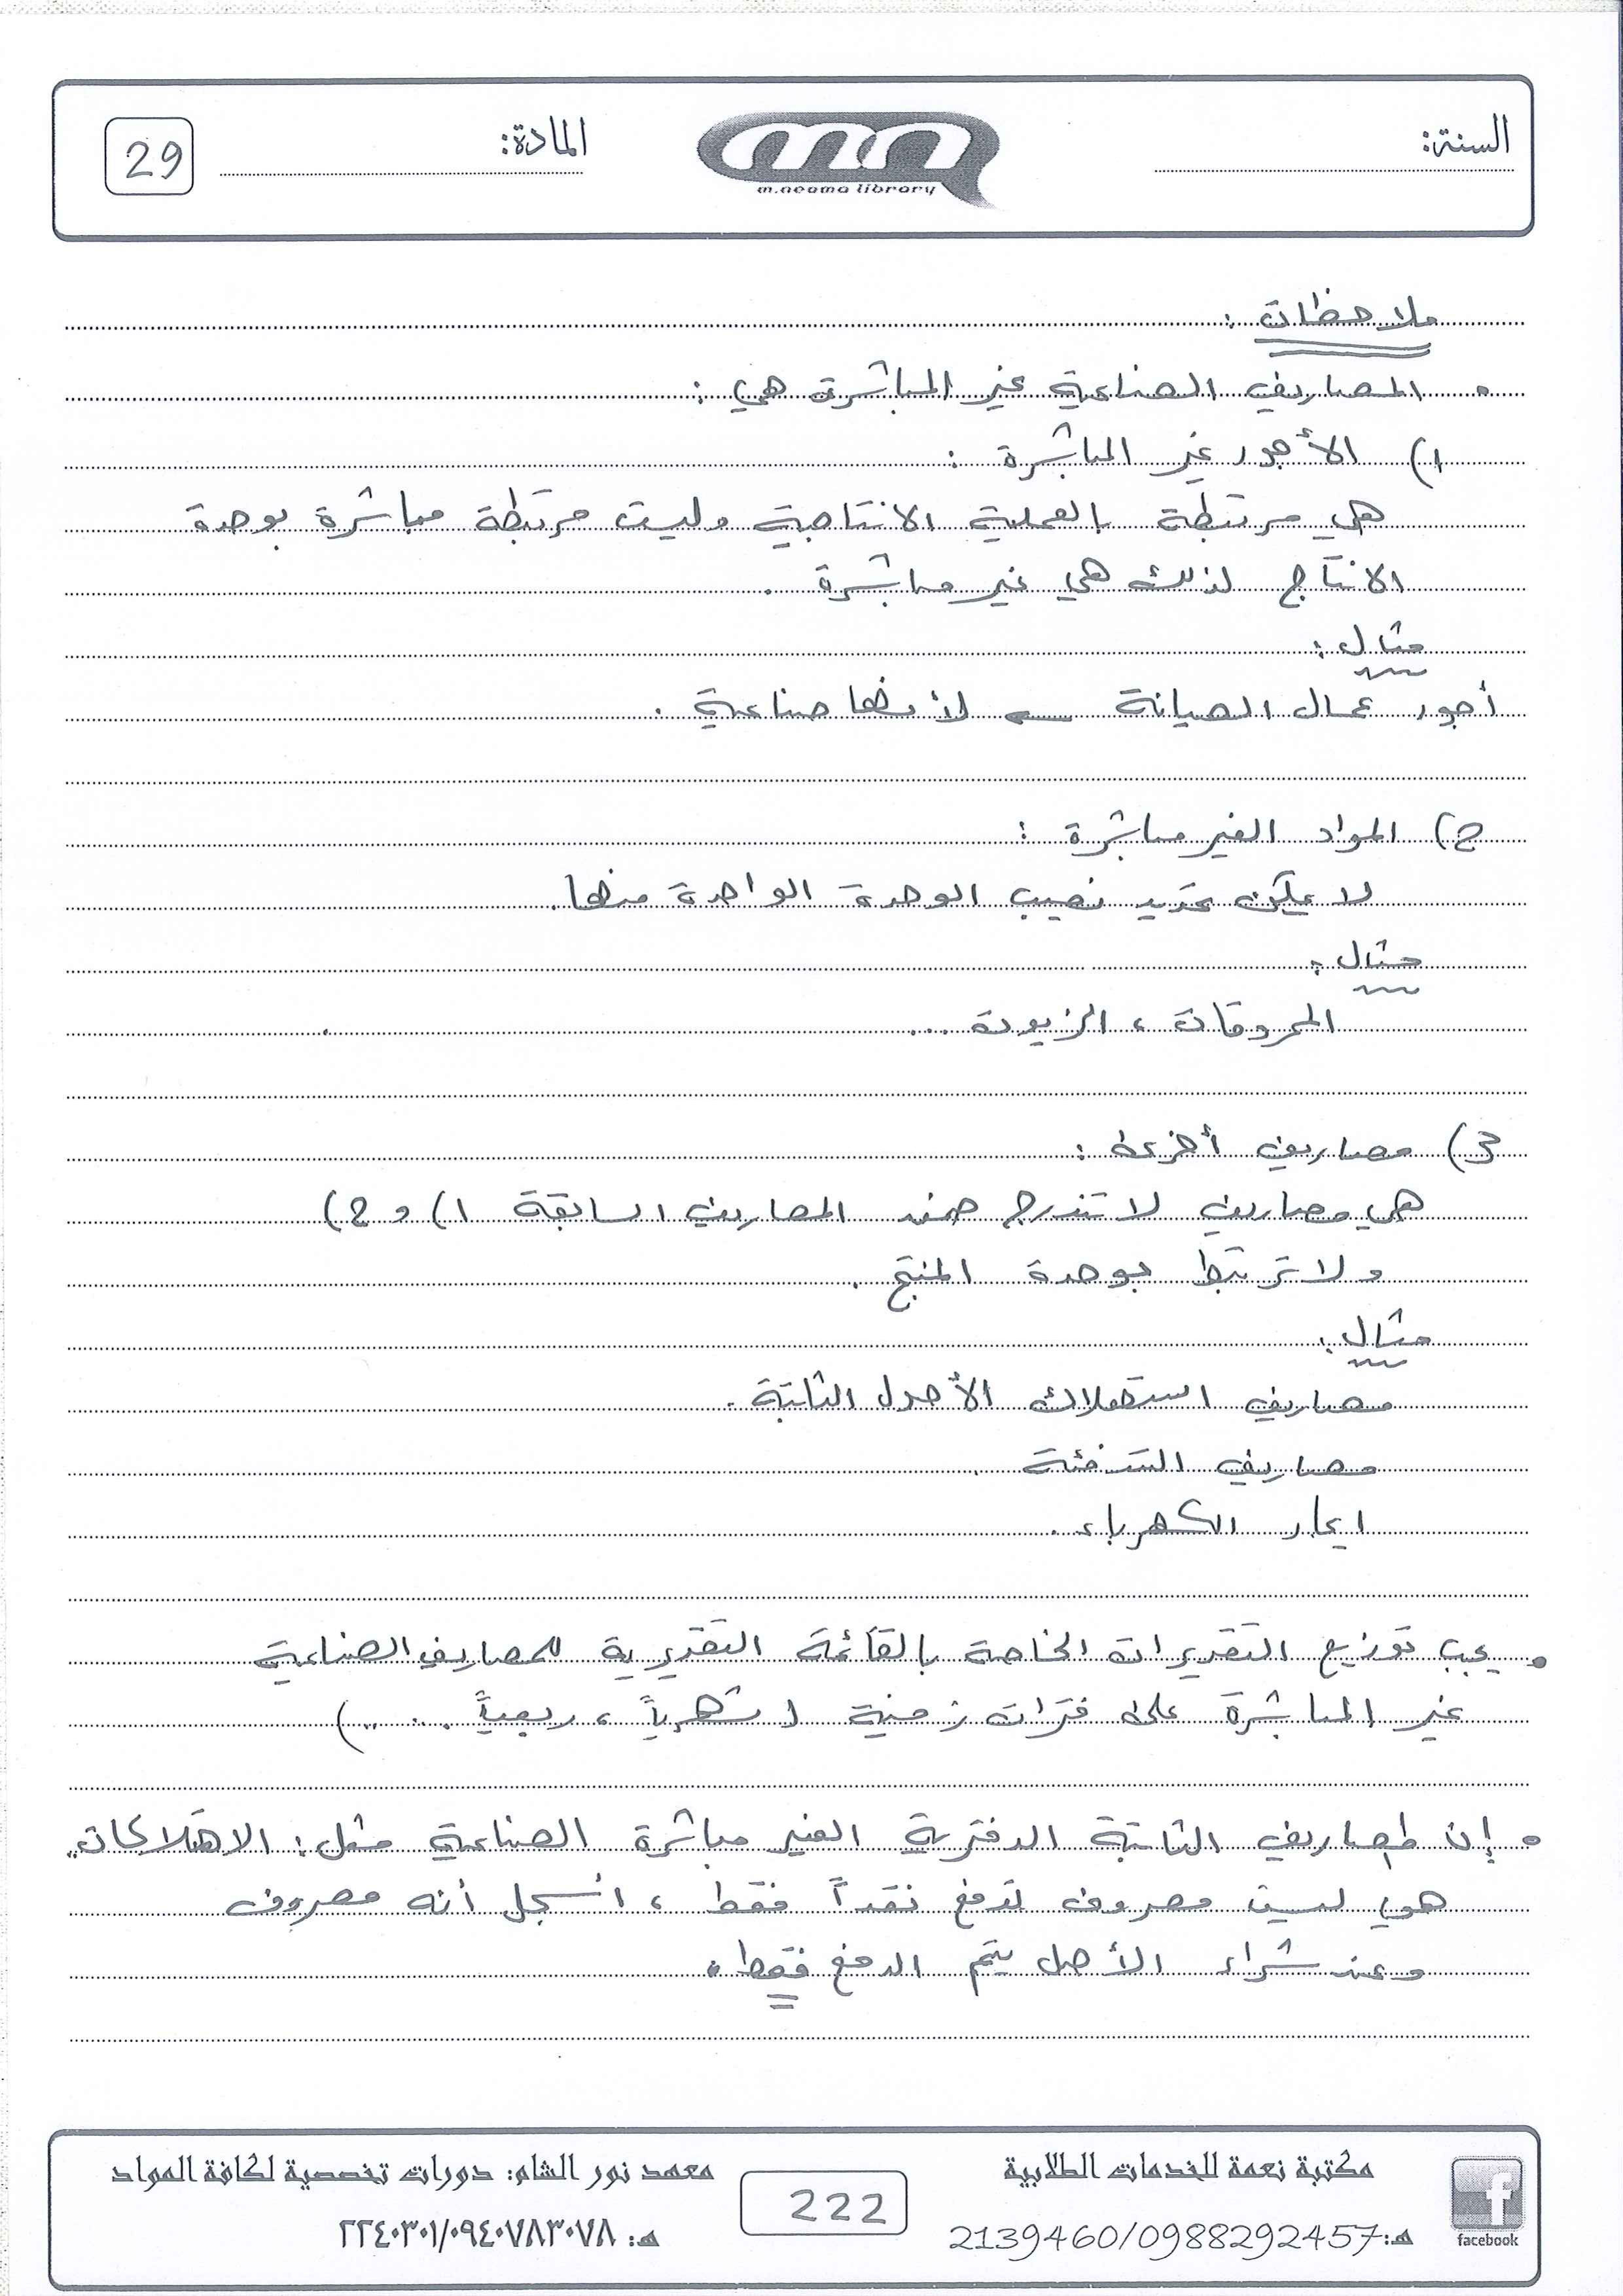 السنة:
m.neoma library
المادة:
29
ملاحظات :
• المصاريف الصناعية غير المباشرة هي :
1) الأجور غير المباشرة :
هي مرتبطة بالعملية الانتاجية وليست مرتبطة مباشرة بوحدة
الانتاج لذلك هي غير مباشرة .
مثال :
أجور عمال الصيانة ← لأنها صناعية .
2) المواد الغير مباشرة :
لا يمكن تحديد نصيب الوحدة الواحدة منها .
مثال :
المحروقات ، الزيوت ...
3) مصاريف أخرى :
هي مصاريف لا تندرج ضمن المصاريف السابقة 1) و 2)
ولا ترتبط بوحدة المنتج .
مثال :
مصاريف استهلاك الأصول الثابتة .
مصاريف التدفئة
ايجار الكهرباء .
• يجب توزيع التقديرات الخاصة بالقائمة التقديرية للمصاريف الصناعية
غير المباشرة على فترات زمنية ( شهرياً ، ربعياً .... )
• إن المصاريف الثابتة الدفترية الغير مباشرة الصناعية مثل : الاهتلاكات
هي ليست مصروف تدفع نقداً فقط ، انسجل أنه مصروف
وعند شراء الأصل يتم الدفع فقط .
مكتبة نعمة للخدمات الطلابية
هـ: 2139460/0988292457
facebook
222
معهد نور الشام: دورات تخصصية لكافة المواد
هـ: ٢٢٤٠٣٠١/٠٩٤٠٧٨٣٠٧٨